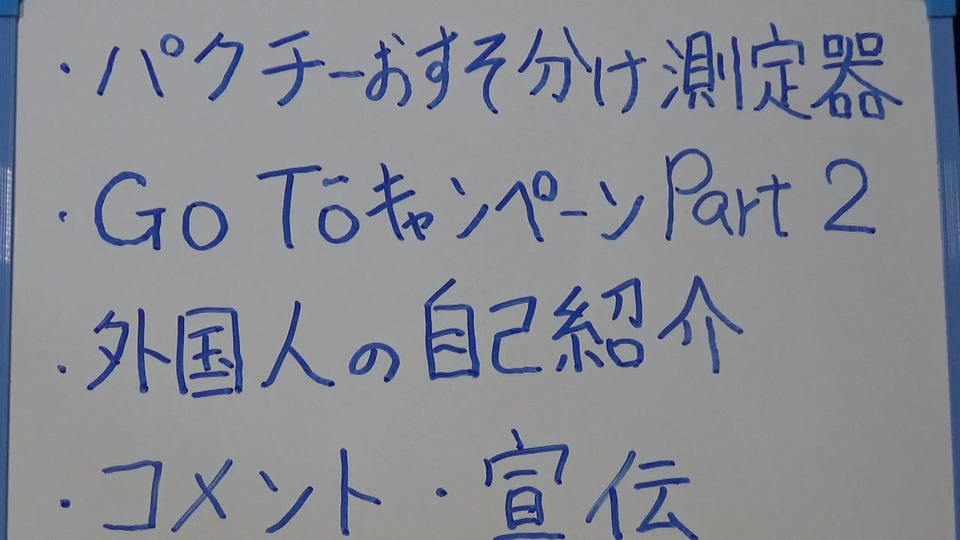 ・パクチーおすそ分け測定器
・Go Toキャンペーン Part 2
・外国人の自己紹介
・コメント・宣伝